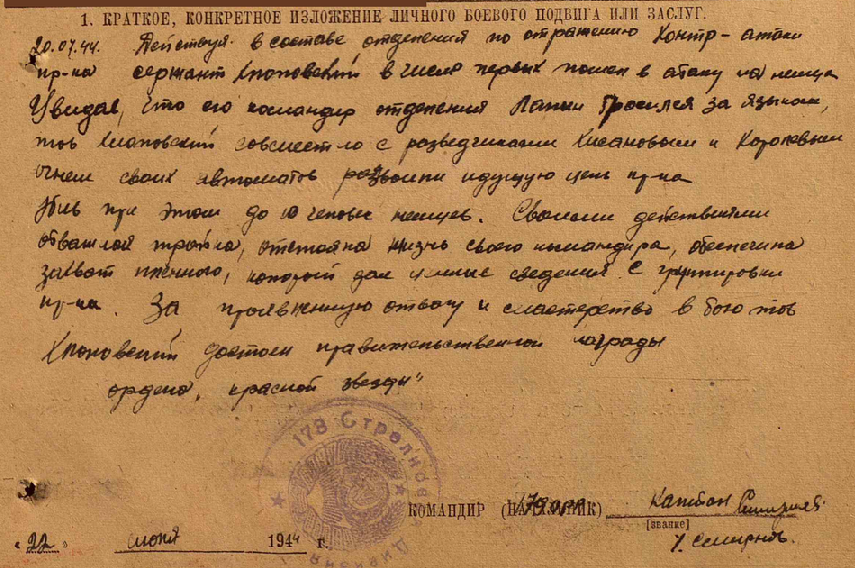 1. КРАТКОЕ, КОНКРЕТНОЕ ИЗЛОЖЕНИЕ ЛИЧНОГО БОЕВОГО ПОДВИГА ИЛИ ЗАСЛУГ.
20.07.44. Действуя в составе отделения по отражению контр-атаки
пр-ка сержант Хлоповский в числе первых пошел в атаку на немца
Увидав, что его командир отделения Лапин бросился за языком,
тов Хлоповский совместно с разведчиками и Королевым
огнем своих автоматов идущую цепь пр-ка
убив при этом до 10 человек немцев. Своими действиями
отважная тройка, отстояла жизнь своего командира, обеспечила
захват пленного, который дал ценные сведения о группировки
пр-ка. За проявленную отвагу и мастерство в бою тов
Хлоповский достоен правительственной награды
ордена, красной звезды"
178 Стрелковая Дивизия
КОМАНДИР (НАЧАЛЬНИК) 
[звание]
"22" июля 1944 г.
Смирнов.